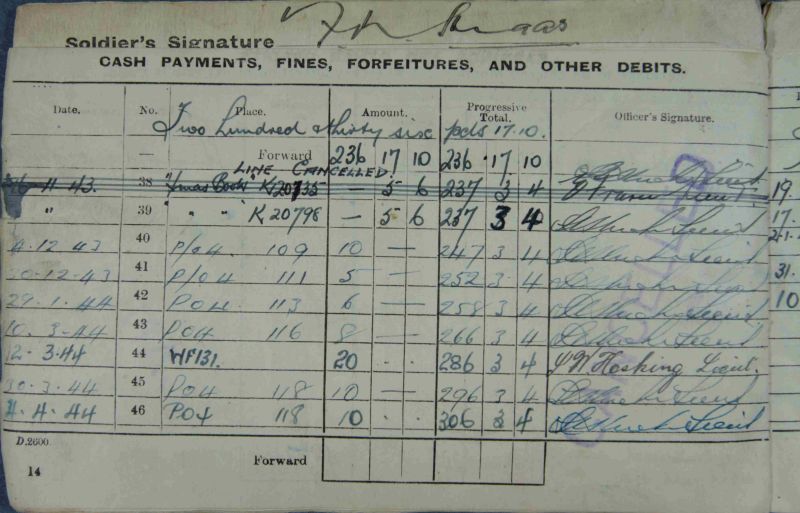 Soldier's Signature
CASH PAYMENTS, FINES, FORFEITURES, AND OTHER DEBITS.
Date. No. Place. Amount. Progressive Total. Officer's Signature.
Two hundred & thirty six pds 17.10.
— Forward 236 17 10 236 17 10
LINE CANCELLED.
11.43. 38 Xmas K20735 5 6 237 3 4
" 39 " " K20798 — 5 6 237 3 4 Lieut
4.12.43 40 P/o4 109 10 — 247 3 4 Lieut
12.43 41 P/o4 111 5 — 252 3 4 Lieut
29.1.44 42 PO4 113 6 — 258 3 4 Lieut
10.3.44 43 PO4 116 8 — 266 3 4 Lieut
12.3.44 44 WF131. 20 . . 286 3 4 Hosking Lieut.
3.44 45 PO4 118 10 — 296 3 4 Lieut
4.4.44 46 PO4 118 10 . 306 3 4 Lieut
D.2600.
Forward
14
19.
17.
31.
10